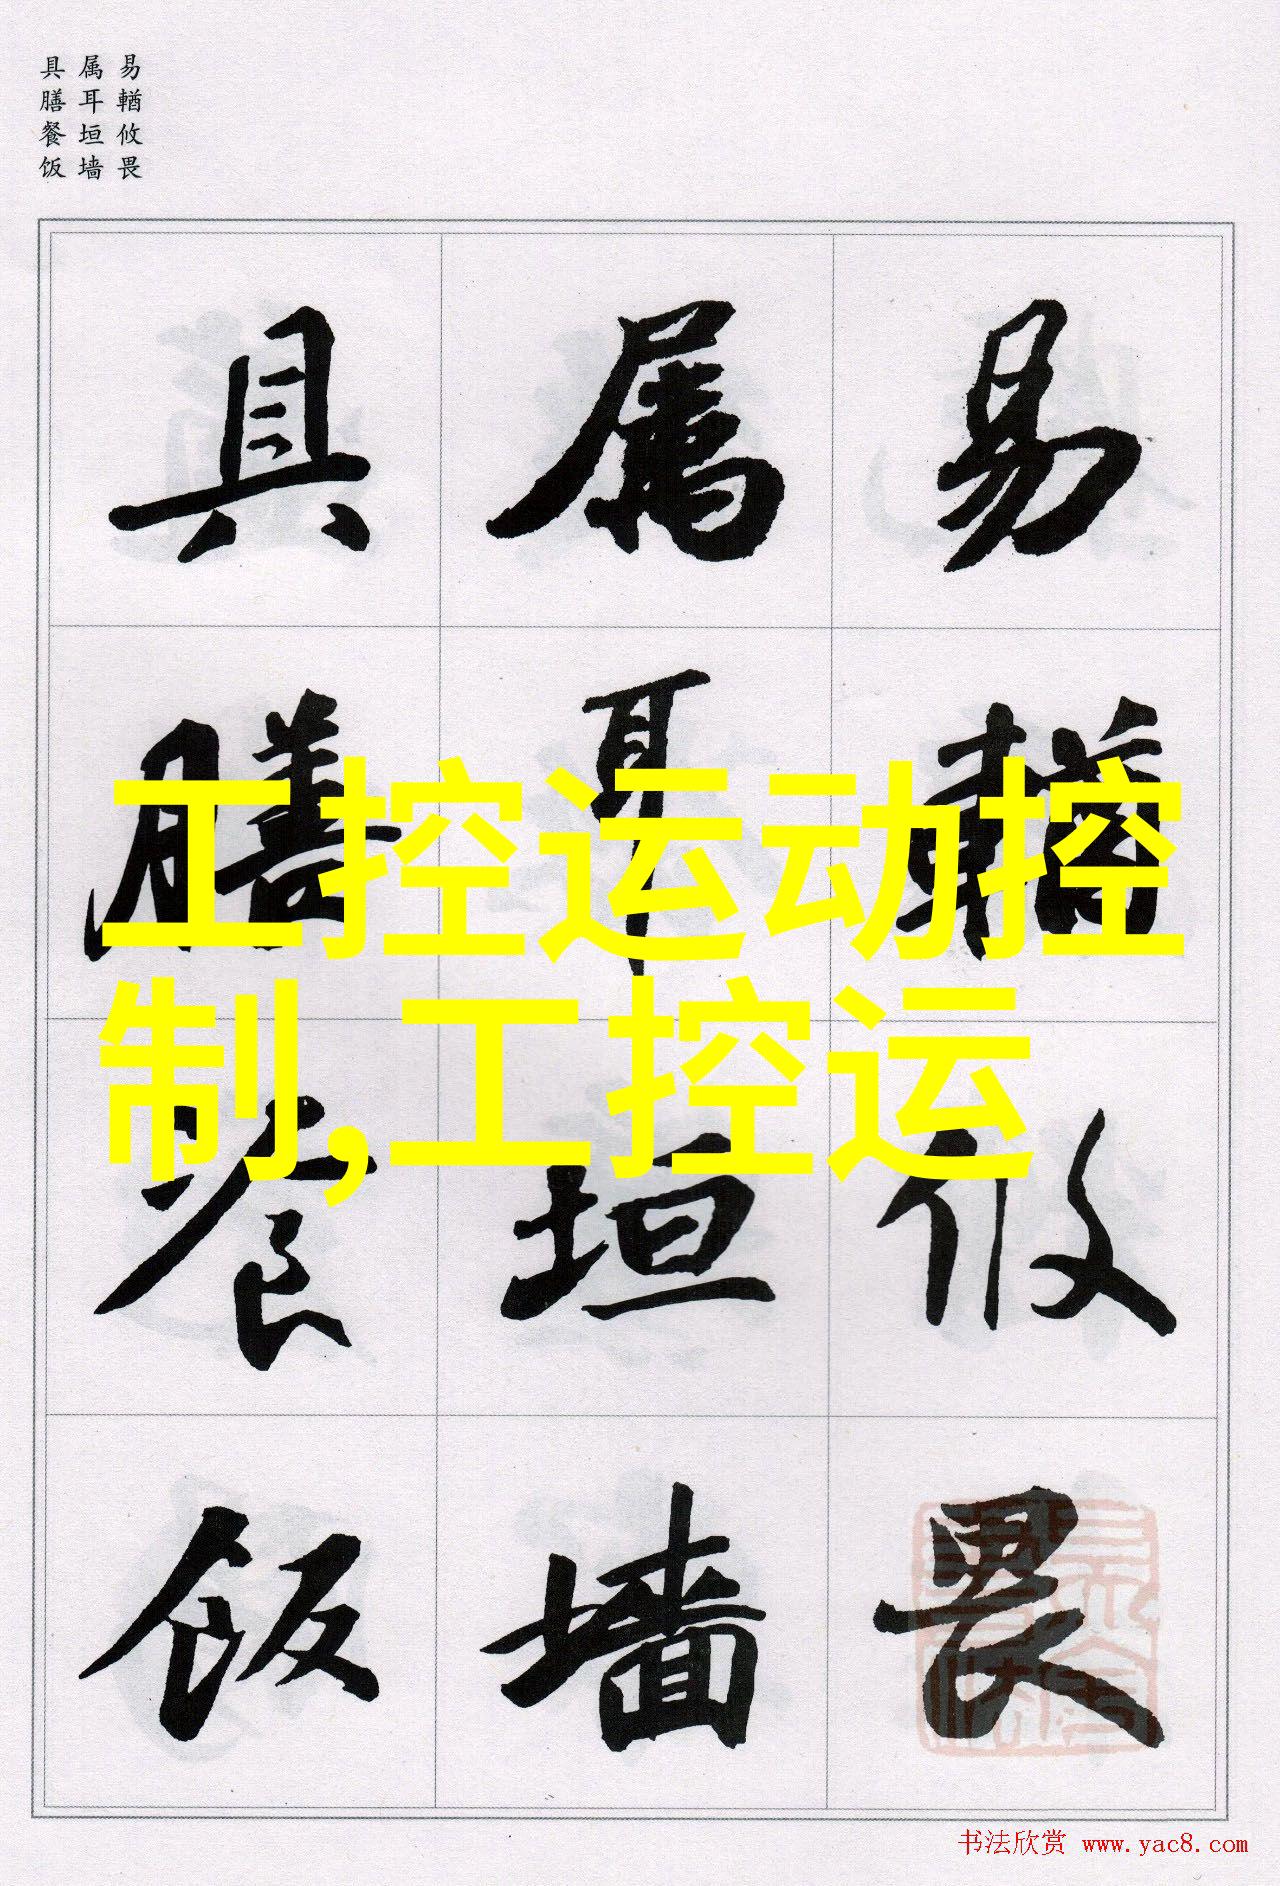 易輶攸畏
属耳垣墙
具膳餐饭
易輶攸畏
属耳垣墙
具膳餐饭
工控运动控
制,工控运
书法欣赏 www.yac8.com